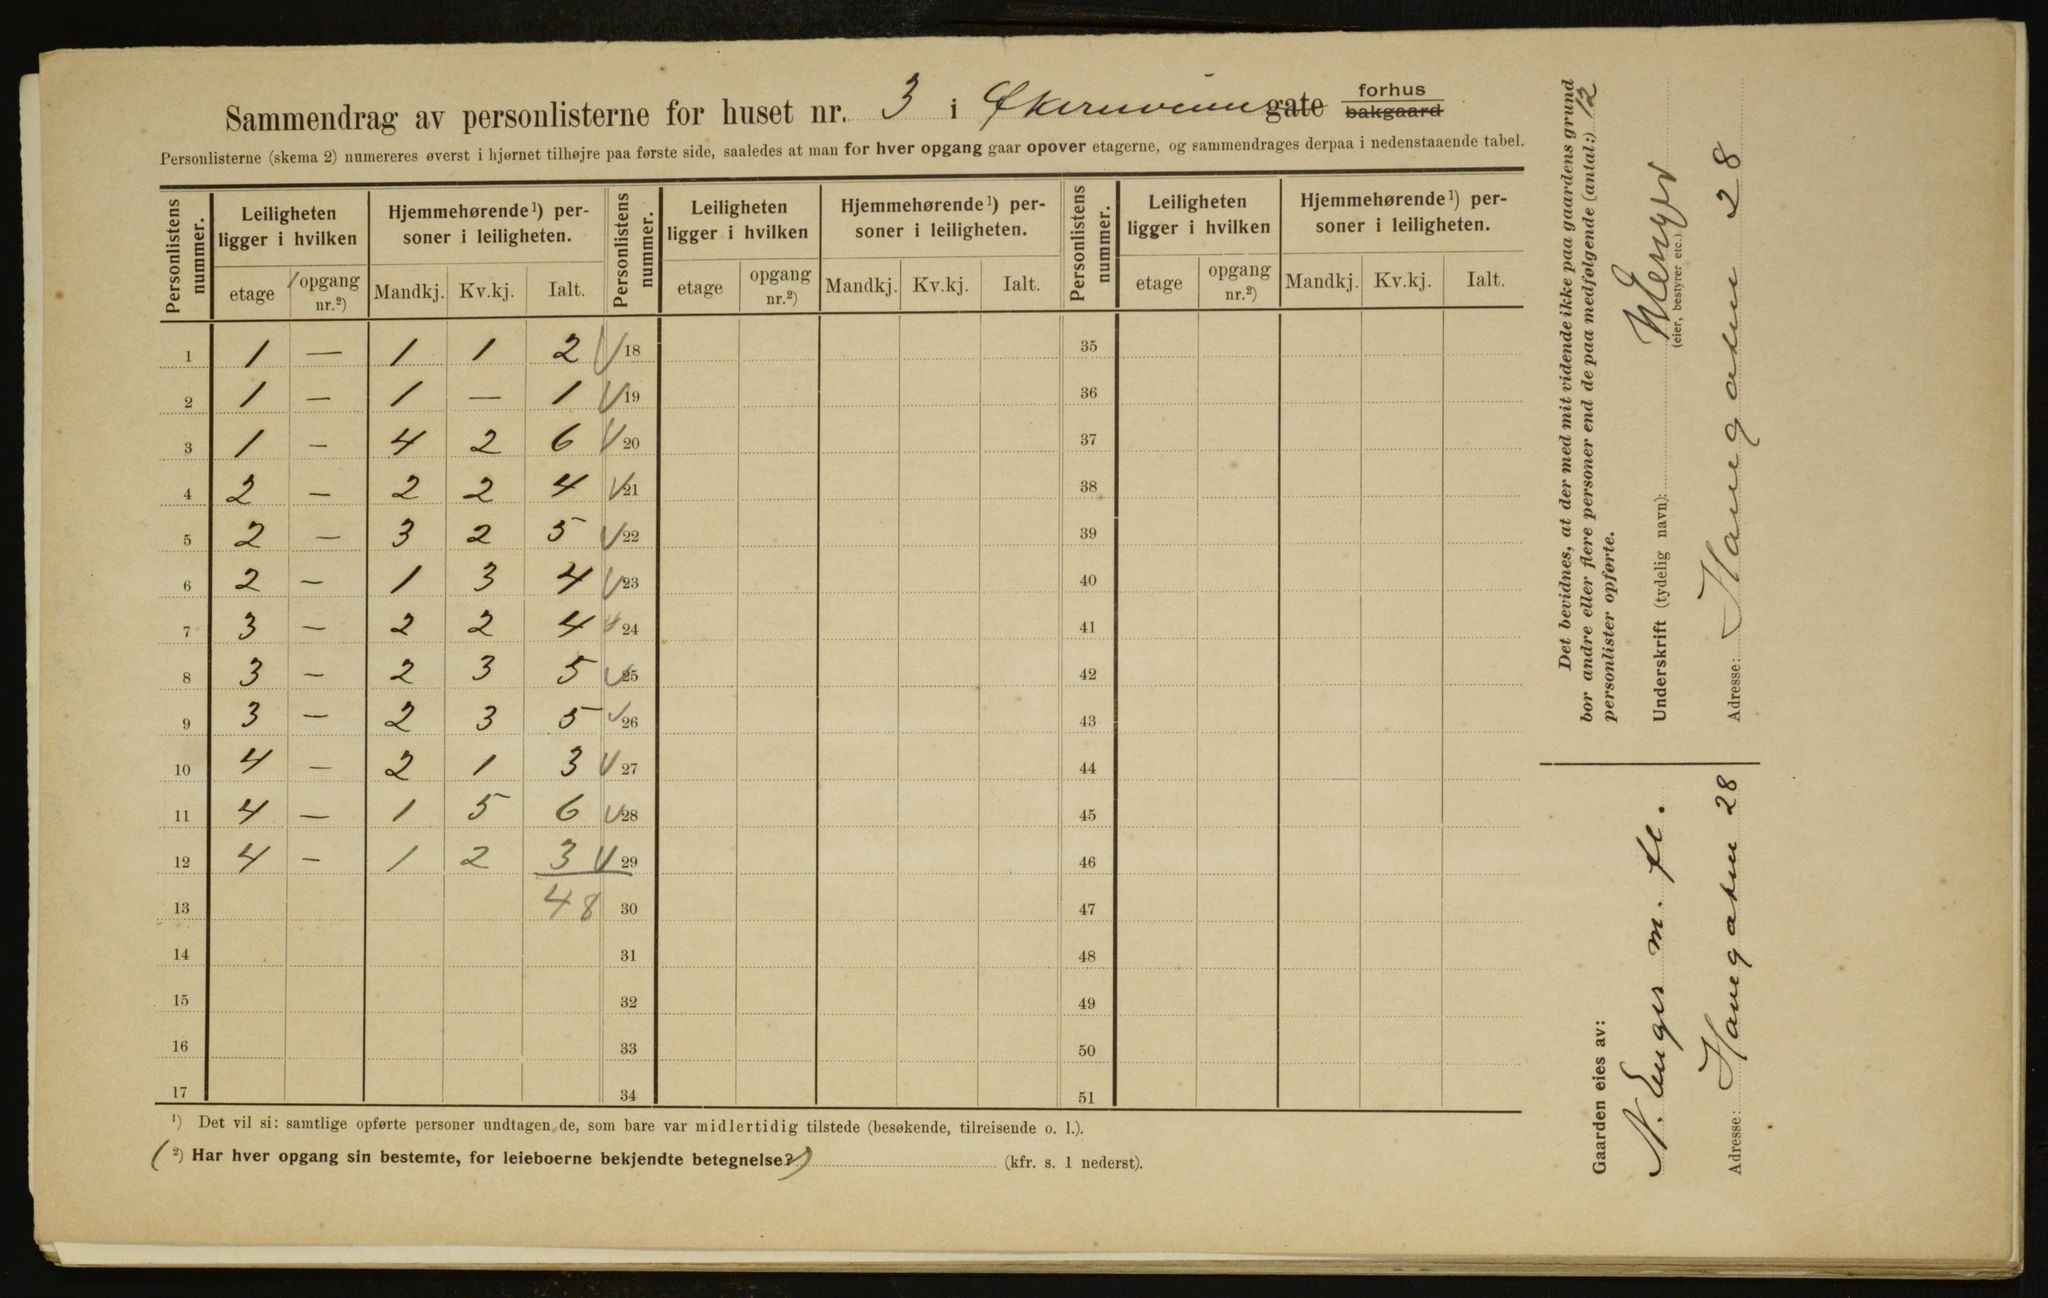 Sammendrag av personlisterne for huset nr. 3 i Økernveien gate forhus bakgaard
Personlisterne (skema 2) numereres øverst i hjørnet tilhøjre paa første side, saaledes at man for hver opgang gaar opover etagerne, og sammendrages derpaa i nedenstaaende tabel.
Personlistens nummer. Leiligheten ligger i hvilken Hjemmehørende 1) personer i leiligheten. Personlistens nummer. Leiligheten ligger i hvilken Hjemmehørende 1) personer i leiligheten. Personlistens nummer. Leiligheten ligger i hvilken Hjemmehørende 1) personer i leiligheten.
etage opgang nr. 2) Mandkj. Kv.kj. Ialt. etage opgang nr. 2) Mandkj. Kv.kj. Ialt. etage opgang nr. 2) Mandkj. Kv.kj. Ialt.
1 1 — 1 1 2 18 35
2 1 — 1 — 1 19 36
3 1 — 4 2 6 20 37
4 2 — 2 2 4 21 38
5 2 — 3 2 5 22 39
6 2 — 1 3 4 23 40
7 3 — 2 2 4 24 41
8 3 — 2 3 5 25 42
9 3 — 2 3 5 26 43
10 4 — 2 1 3 27 44
11 4 — 1 5 6 28 45
12 4 — 1 2 3 29 46
13 48 30 47
14 31 48
15 32 49
16 33 50
17 34 51
1) Det vil si: samtlige opførte personer undtagen de, som bare var midlertidig tilstede (besøkende, tilreisende o. l.).
(2) Har hver opgang sin bestemte, for leieboerne bekjendte betegnelse?) (kfr. s. 1 nederst).
Det bevidnes, at der med mit vidende ikke paa gaardens grund
bor andre eller flere personer end de paa medfølgende (antal:) 12
personlister opførte.
Underskrift (tydelig navn): N Enger
(eier, bestyrer etc.)
Adresse: Haugaten 28
Gaarden eies av:
N. Enger m. fl.
Adresse: Haugaten 28